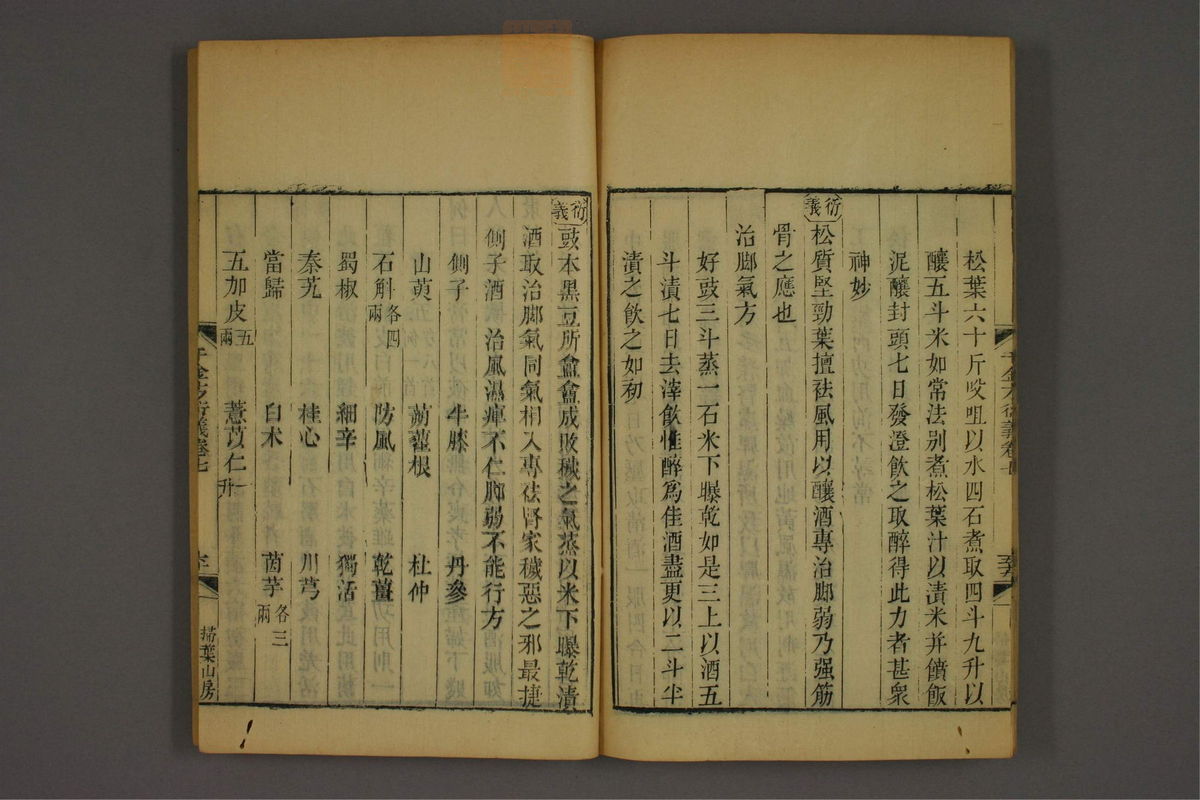 松葉六十斤㕮咀以水四石煮取四斗九升以
釀五斗米如常法别煮松葉汁以漬米并饙飯
泥釀封頭七日發澄飲之取醉得此力者甚衆
神妙
衍義
松質堅勁葉擅祛風用以釀酒專治脚弱乃强筋
骨之應也
治脚氣方
好豉三斗蒸一石米下曝乾如是三上以酒五
斗漬七日去滓飲惟醉爲佳酒盡更以二斗半
漬之飲之如初
衍義
豉本黑豆所盦盦成敗穢之氣蒸以米下曝乾漬
酒取治脚氣同氣相入專祛腎家穢惡之邪最捷
側子酒 治風濕痺不仁脚弱不能行方
側子 牛膝 丹參
山萸 蒴藋根 杜仲
石斛各四兩 防風 乾薑
蜀椒 細辛 獨活
秦艽 桂心 川芎
當歸 白术 茵芋各三兩
五加皮五兩 薏苡仁一升
千金方衍義卷七
掃葉山房